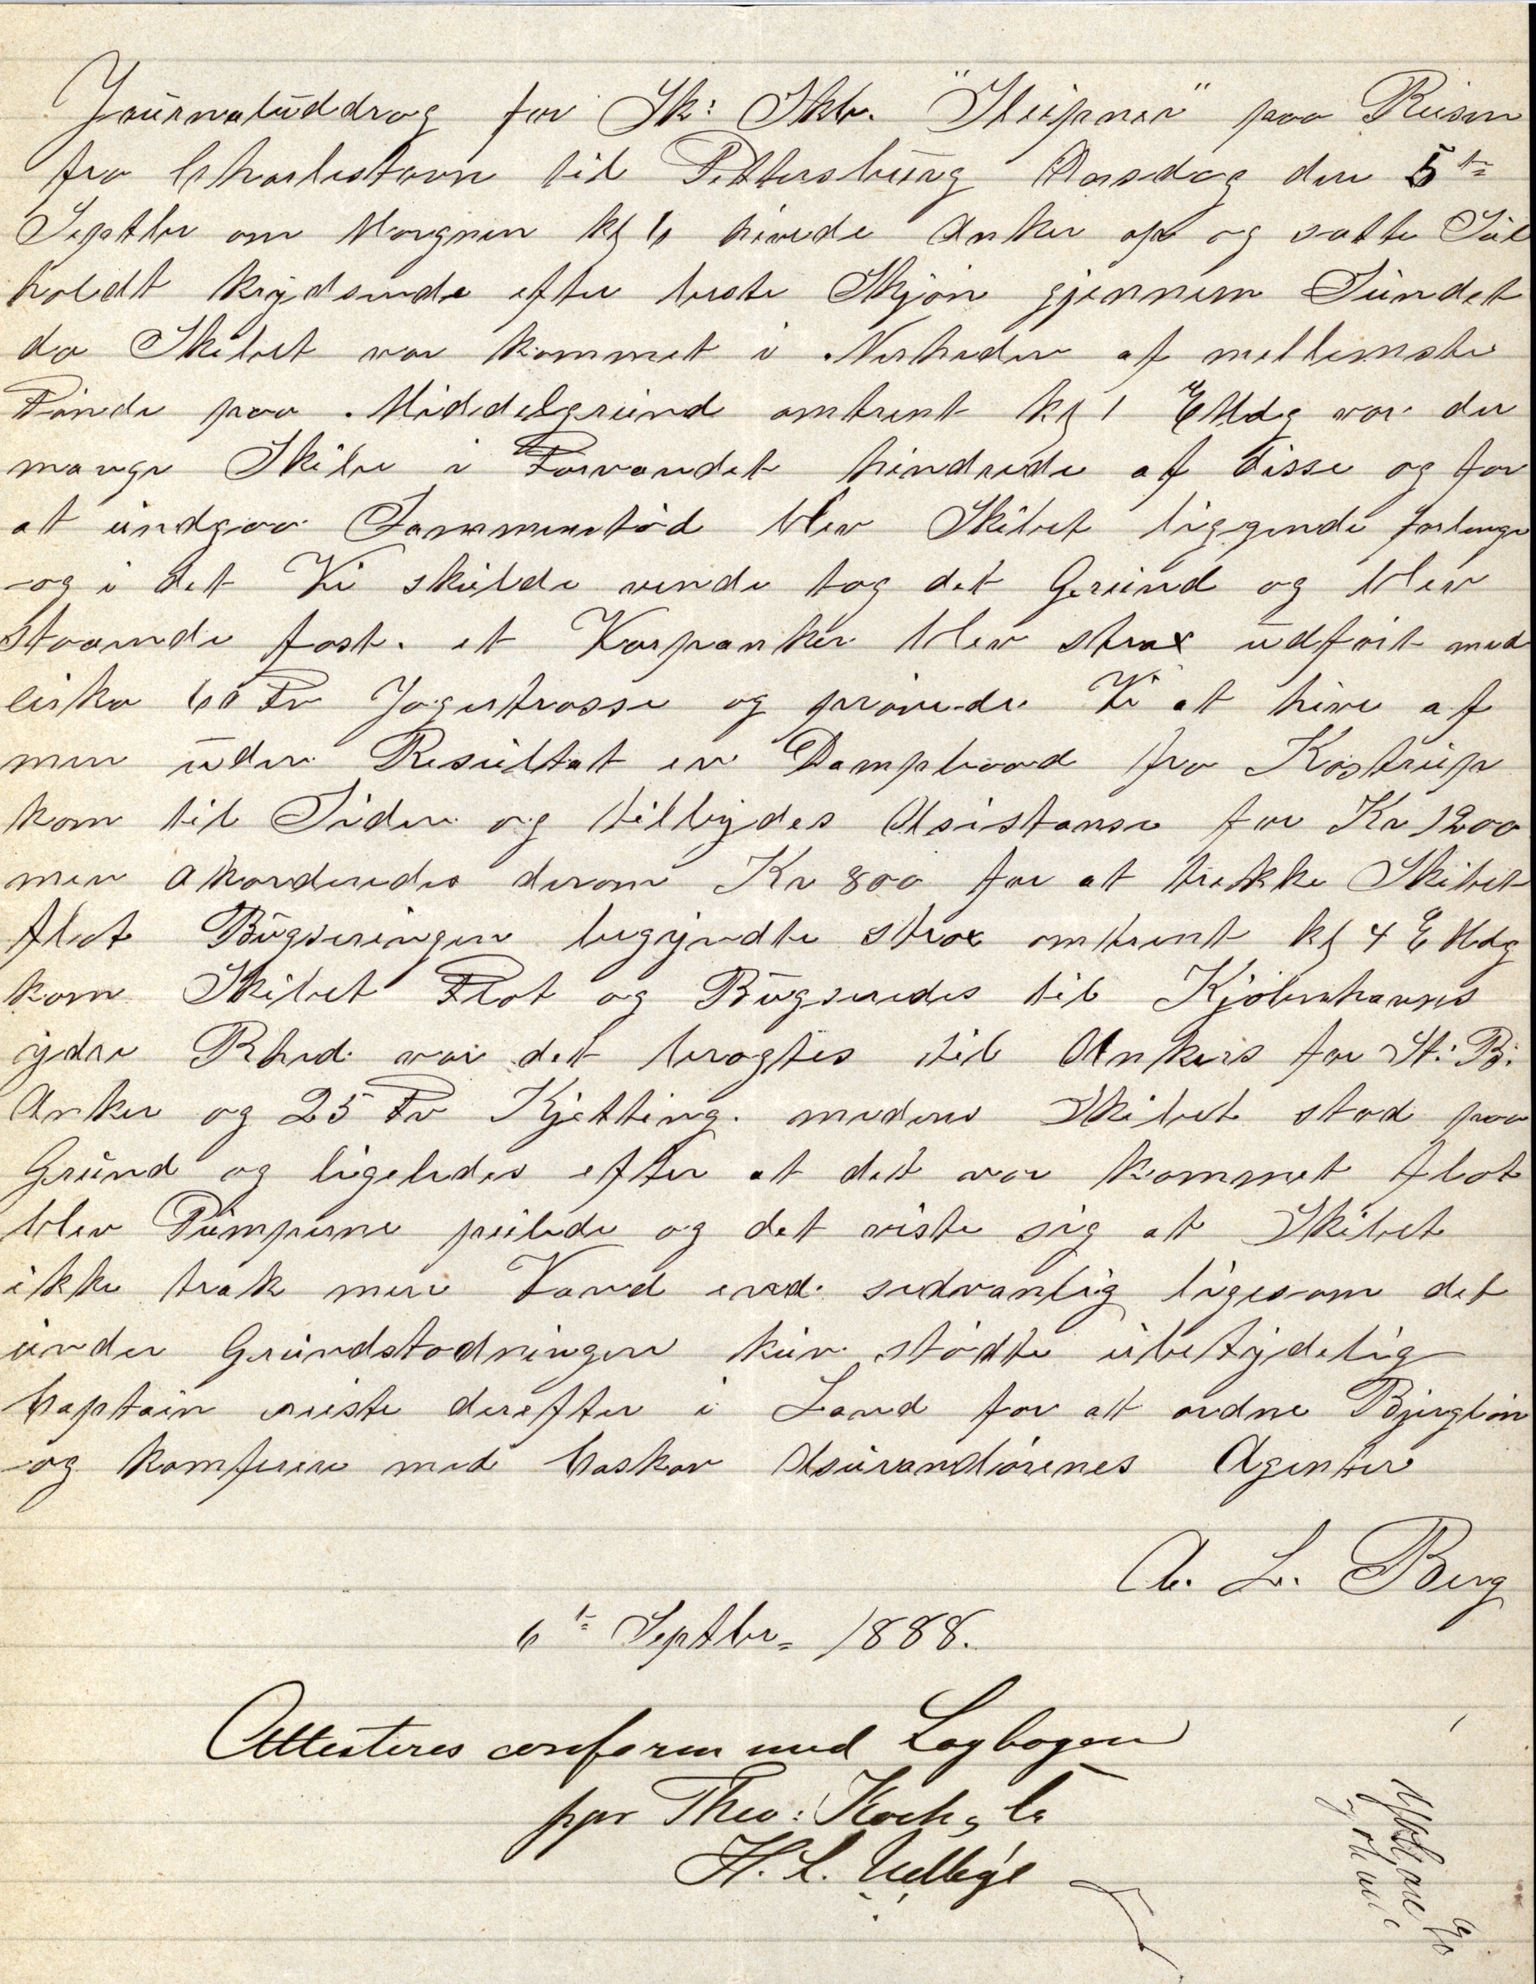 Journaluddrag for Sk: Skb. "Sleipner" paa Reisen
fra Charlestown til Pettersburg Onsdag den 5te
Septbr om Morgnen kl 6 hivede Anker op og satte Seil
holdt krydsende efter beste Skjøn gjennem Sundet
da Skibet var kommet i Nerheden af mellemste
Tønde paa Middelgrund omtrent kl 1 E Mdg var der
mange Skibe i Farvandet hindrede af disse og for
at undgaa Sammenstød blev Skibet liggende forlenge
og i det Vi skulde vende tog det Grund og blev
staaende fast. et Varpanker blev strax udført med
cirka 60 Fv Jagertrosse og prøvede Vi at hive af
men uden Resultat en Dampbaad fra Kastrup
kom til Siden og tilbydes Asistanse for Kr 1200
men akorderedes derom Kr 800 for at trekke Skibet
flot Bugseringen begyndte strax omtrent kl 4 E Mdg
kom Skibet Flot og Bugseredes til Kjøbenhavns
ydre Rhed var det bragtes til Ankers for St: B:
Anker og 25 Fv Kjetting. medens Skibet stod paa
Grund og ligeledes efter at det var kommet flot
blev Pumperne peilede og det viste sig at Skibet
ikke trak mere Vand end sedvanlig ligesom det
under Grundstødningen kun stødte ubetydelig
Captain reiste derefter i Land for at ordne Bjergløn
og komferere med Caskov Asurandørenes Agenter
A. L. Berg
6te Septbr 1888.
Attesteres conform med Logbogen
ppr Theo: Koch & Co
H. C.